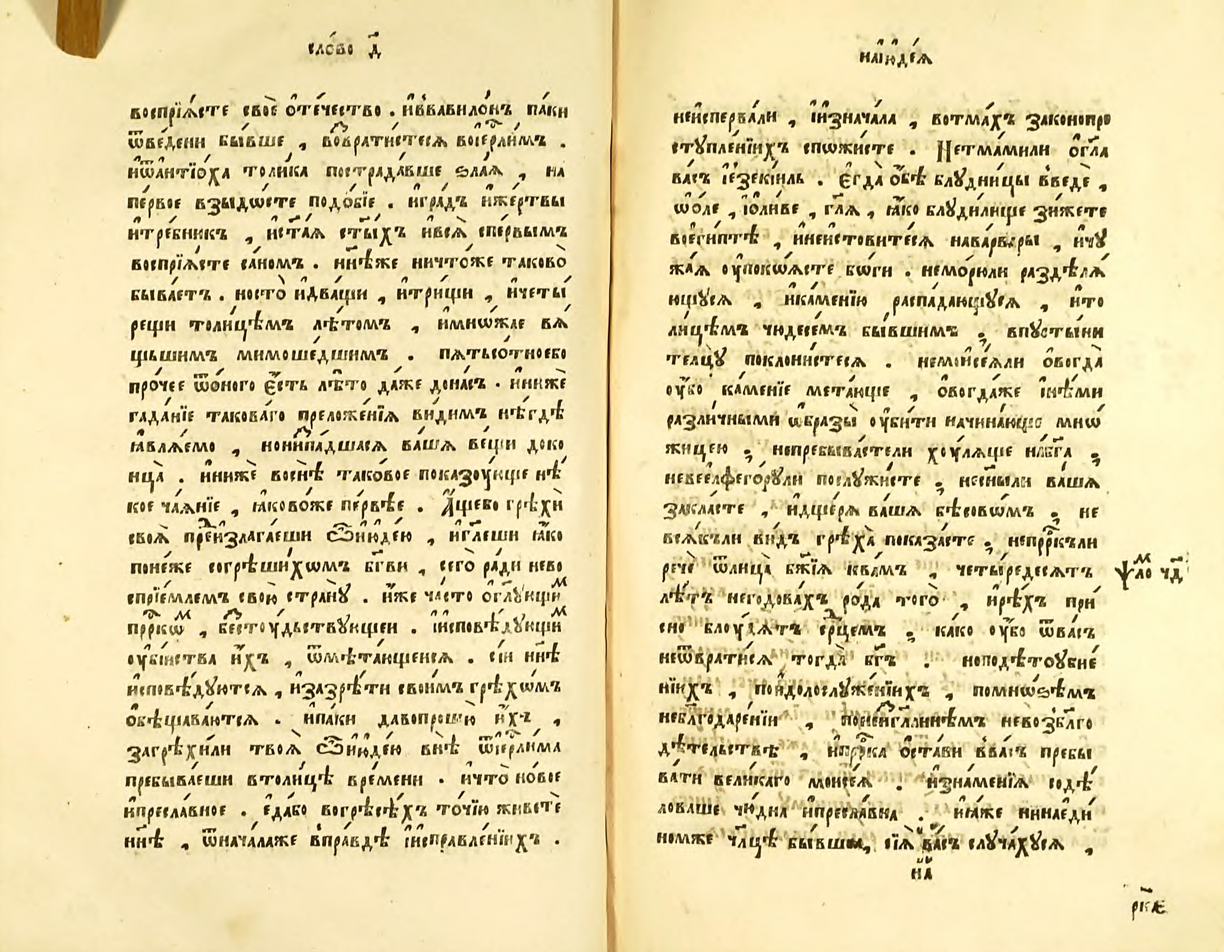 сло́во д҃
воспрїѧ́сте своѐ ѻ҆те́чество . и҆ввавило́нъ па́ки
ѿведени бы́вше , во́вратистесѧ воі҆ерⷭ҇ли́мъ .
и҆ѿантїо́ха толи́ка пострада́вше ѕла́ѧ , на
первое взыдо́сте подо́бїе . и҆гра́дъ и҆же́ртвы
и҆тре́бникъ , и҆ст҃а́ѧ ст҃ы́хъ и҆всѧ̀ спе́рвымъ
воспрїѧ́сте са́номъ . нн҃ѣже ничто́же таково̀
быва́етъ . носто̀ и҆два́щи , и҆три́щи , и҆четы́
рещи толи́цѣмъ лѣ́томъ , и҆мно́жае вѧ́
щьшимъ мимоше́дшимъ . пѧ́тьсо́тноебо
про́чее ѿо́ного є҆́сть лѣ́то да́же дона́съ . и҆нижѐ
гада́нїе такова́го преложе́нїѧ ви́димъ нѣ́гдѣ
ꙗ҆влѧ́емо , нонипа́дшаѧсѧ ва́шѧ ве́щи доко
нца̀ . и҆нижѐ восн҃ѣ тако́вое показоу́юще нѣ́
кое ча́ѧнїе , ꙗ҆ково́же пе́рвѣе . А҆́щебо грѣхѝ
своѧ̀ преⷣи́злага́еши ѽи҆ю́дею , и҆гл҃еши ꙗ҆́ко
поне́же согрѣши́хѡмъ бг҃ви , сего̀ ра́ди нево
спрїе́млемъ свою̀ страну̀ . и҆́же ча́сто ѻ҆глу́ющиⷨ
прⷪ҇ркѡⷨ , беⷭ҇тоу́дьствующеи . и҆исповѣ́дующиⷨ
оу҆би́иства и҆́хъ , ѿмѣта́ющеисѧ . сїи нн҃ѣ
и҆исповѣ́дуютсѧ , и҆зазрѣ́ти свои́мъ грѣхѡ́мъ
ѻ҆бѣщава́ютсѧ . и҆па́ки давопрошю̀ и҆́хъ ,
загрѣхи́ли твоѧ̀ ѽи҆ю́дею внѣ̀ ѿі҆ерⷭ҇ли́ма
пребыва́еши втоли́цѣ вре́мени . и҆что̀ но́вое
и҆пресла́вное . е҆да́бо вогрѣсѣ́хъ то́чїю живе́те
нн҃ѣ , ѿнача́лаже впра́вдѣ и҆исправле́нїихъ .
наі҆юде́ѧ
неи҆спе́рвали , и҆изнача́ла , вотма́хъ законопро
ступле́нїихъ спожи́сте . Нетма́мили ѻ҆гл҃а
ва́съ і҆езекі́иль . є҆гда̀ ѻ҆́бѣ блудни́цы введѐ ,
ѡ҆́ле , і҆о́ливе , гл҃ѧ , ꙗ҆́ко блуди́лище зи́жете
воегѵ́птѣ , и҆неи́стовитесѧ нава́рвары , и҆чу
жа́ѧ оу҆покоѧ́ете бо́ги . немо́рюли раздѣлѧ́
ющусѧ , и҆ка́менїю распада́ющусѧ , и҆то
ли́цѣмъ чюдесе́мъ бы́вшимъ ; впусты́ни
телцу̀ поклони́стесѧ . немоисе́ѧли ѻ҆вогда̀
оу҆́бо ка́менїе мета́юще , ѻ҆вогда́же и҆нѣ́ми
разли́чными ѡ҆́бразы оу҆би́ти начина́юще мно
жи́цею ; непребыва́стели хоу́лѧще на́бг҃а ;
невееⷧ҇фего́рули послужи́сте ; несы́ныли ва́шѧ
закла́сте , и҆дще́рѧ ва́шѧ бѣсо́вѡмъ ; не
всѧ́къли ви́дъ грѣха̀ показа́сте ; непрⷪ҇ро́къли
речѐ ѿлица̀ бж҃їѧ ква́мъ , четы́редесѧтъ
лѣ́тъ негодова́хъ ро́да того̀ , и҆рѣ́хъ при́
сно блоу́дѧтъ срⷣцемъ ; ка́ко оу҆́бо ѿва́съ
неѿврати́сѧ тогда̀ бг҃ъ . поподѣтоубие́
нїихъ , пои҆долослуже́нїихъ , помно́зѣмъ
неблагодаре́нїи , понеи҆гл҃а́ннѣмъ невозбл҃го
дѣ́тельствѣ , и҆прⷪ҇ро́ка ѻ҆ста́ви вва́съ пребы
ва́ти вели́каго моисе́ѧ . и҆зна́менїѧ содѣ́
ловаше чю́дна и҆пресла́вна . ꙗ҆́же нинаеди
но́мже чл҃цѣ бы́вша, сїѧ̀ ва́съ случа́хусѧ ,
на
ѱало́ⷨ чд҃
рк҃є